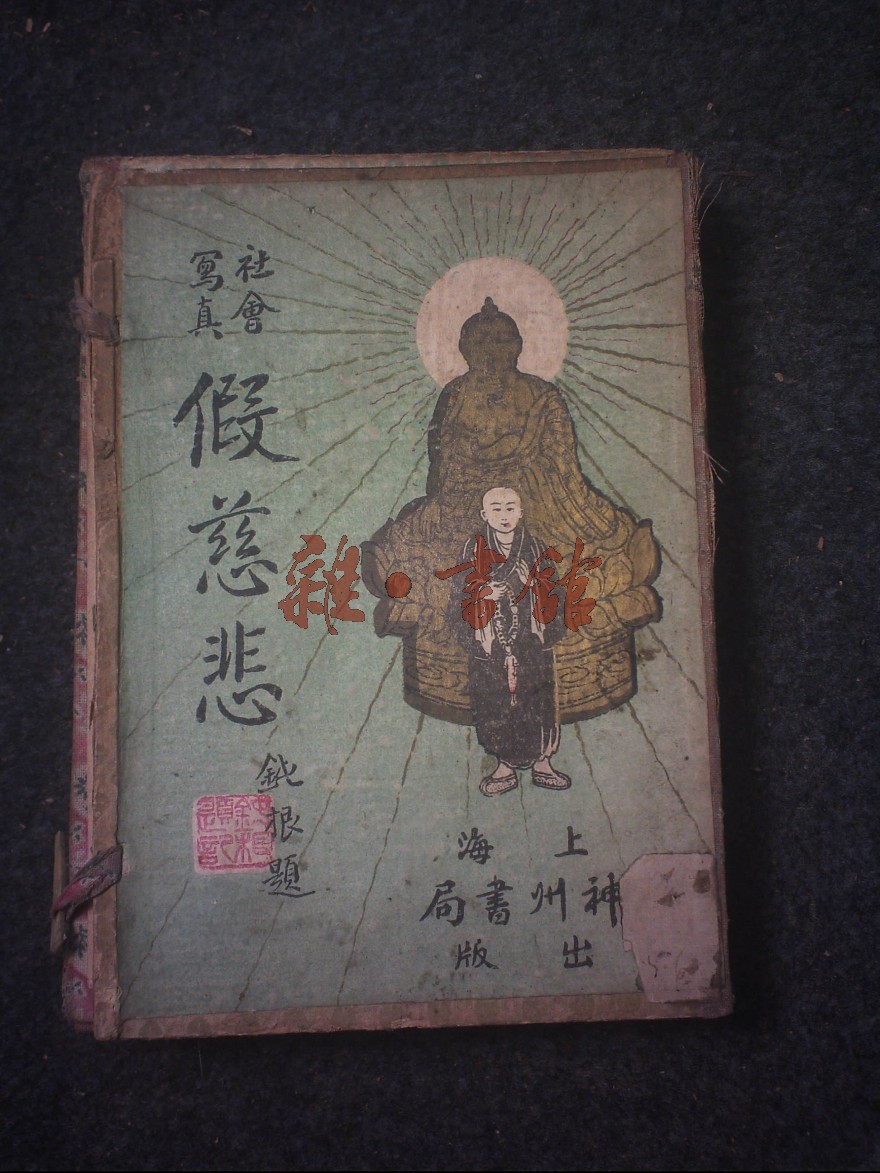 社會
寫真
假慈悲
鈍根題
上海
神州書局
出版
雜·書館